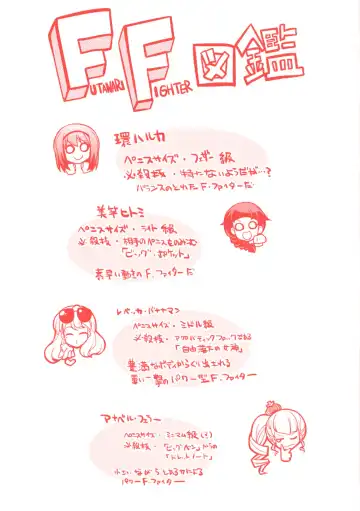 FUTANARI FIGHTER 図鑑
環ハルカ
ペニスサイズ・フェザー級
必殺技・特にないようだが…?
バランスのとれたF・ファイターだ
美竿ヒトミ
ペニスサイズ・ライト級
必殺技・相手のペニスをのみこむ
「ビッグ・ポケット」
素早い動きのF・ファイターだ
レベッカ・バナナマン
ペニスサイズ・ミドル級
必殺技・アクロバティックファックである
「自由落下の女神」
豊満なボディからくり出される
重い一撃のパワー型F・ファイター
アナベル・フェラー
ペニスサイズ・ミニマム級(!)
必殺技・
「ドレッドノート」
小さいながら
パワーF・ファイター